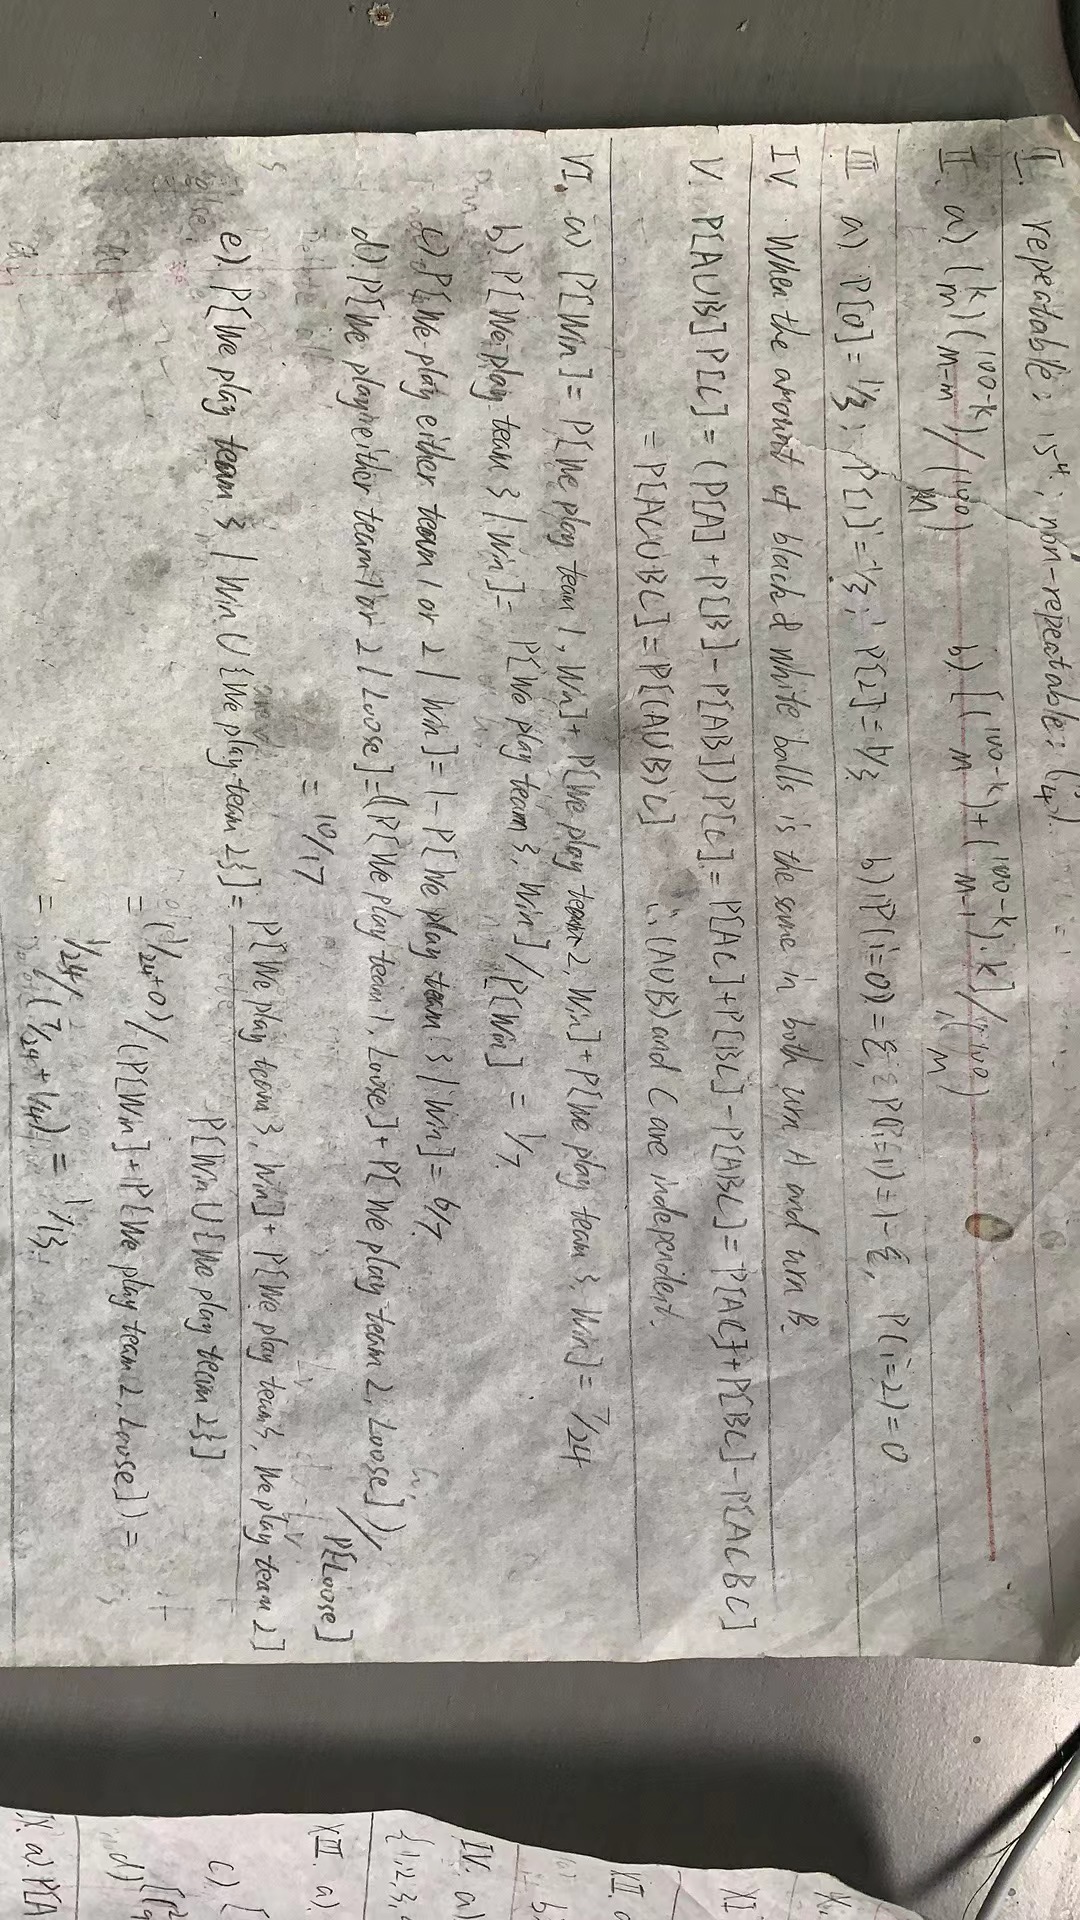 I. repeatable: 15⁴; non-repeatable: (15 4).
II. a) (k m)(100-k M-m)/(100 M) b). [(100-k M)+(100-k M-1)·k]/(100 M)
III a). P[0]=1/3; P[1]=1/3; P[2]=1/3 b) P(i=0)=ξ, P(i=1)=1-ξ, P(i=2)=0
IV. When the amount of black & white balls is the same in both urn A and urn B.
V. P[AUB]P[C]=(P[A]+P[B]-P[AB])P[C]=P[AC]+P[BC]-P[ABC]=P[AC]+P[BC]-P[ACBC]
=P[ACUBC]=P[(AUB)C] ∴(AUB) and C are independent.
VI. a) P[Win]=P[We play team 1, Win]+P[We play team 2, Win]+P[We play team 3, Win]=7/24
b). P[We play team 3 | Win]=P[We play team 3, Win]/P[Win]=1/7.
c). P[We play either team 1 or 2 | Win]=1-P[We play team 3 | Win]=6/7.
d). P[We play either team 1 or 2 | Loose]=(P[We play team 1, Loose]+P[We play team 2, Loose])/P[Loose]
=10/17
e). P[We play team 3 | Win U {We play team 2}]=P[We play team 3, Win]+P[We play team 3, We play team 2]
P[Win U {We play team 2}]
=(1/24+0)/(P[Win]+P[We play team 2, Loose])=
=1/24/(7/24+1/4)=1/13.
XI
XII.
b
IV. a)
{1,2,3,
XIII. a).
c). [
d)
IX. a). P[A